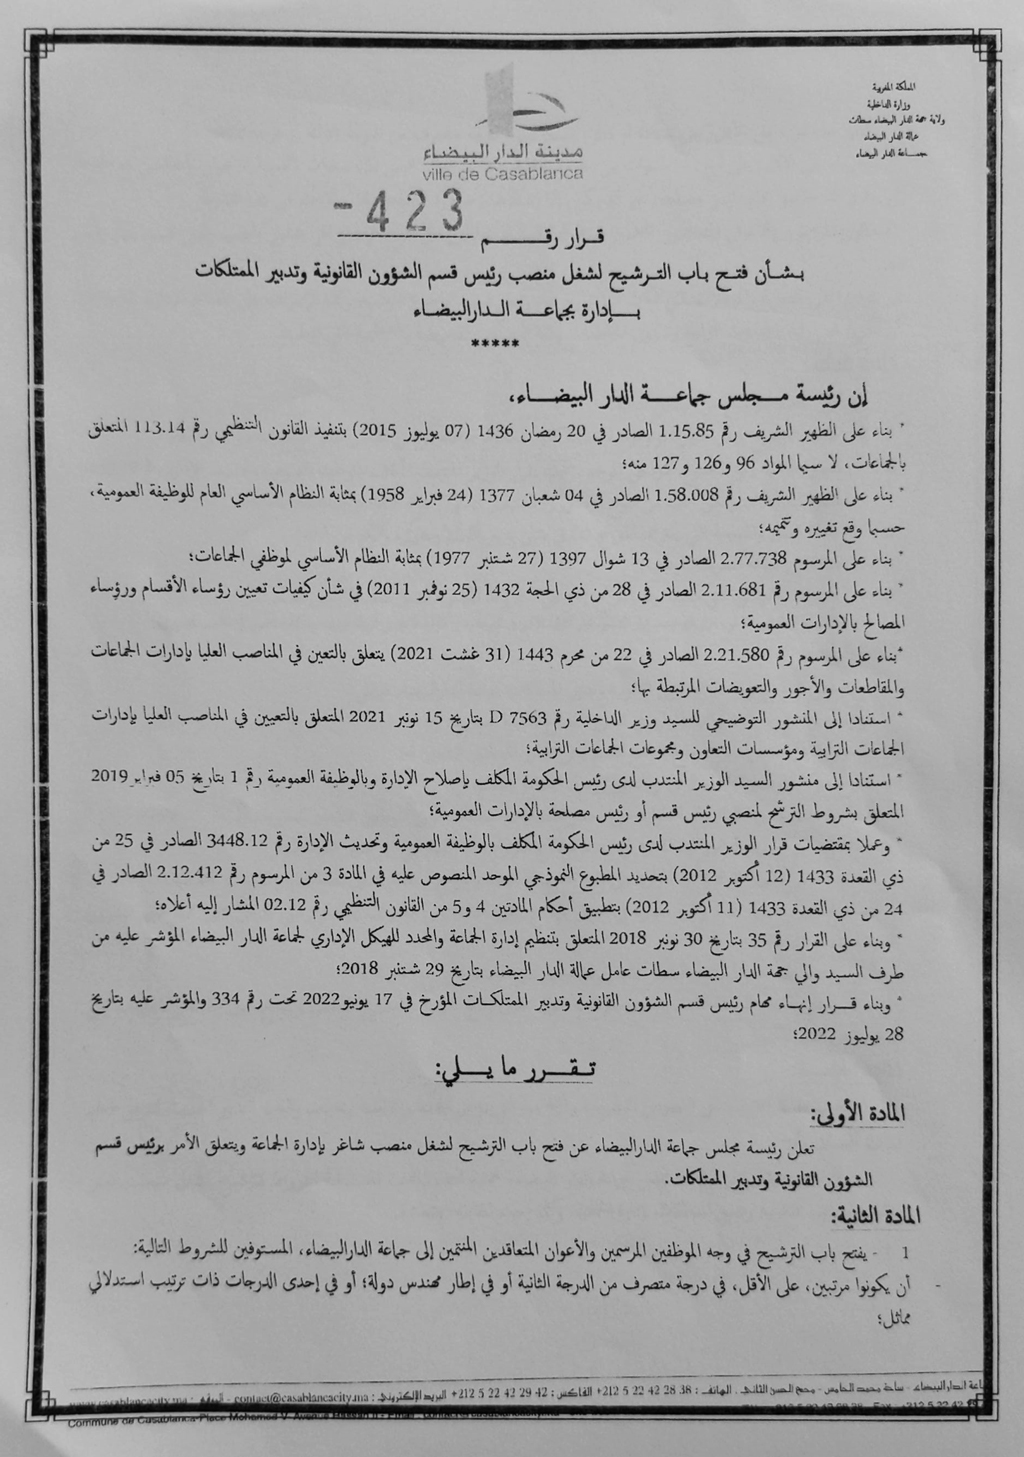 المملكة المغربية
وزارة الداخلية
ولاية جهة الدار البيضاء سطات
عمالة الدار البيضاء
جمـــاعة الدار البيضاء
مدينة الدار البيضاء
ville de Casablanca
قـرار رقـــــم 423 -
بـشـأن فتـح بـاب التـرشيـح لشغـل منصب رئيس قسم الشؤون القانونية وتدبير الممتلكات
بـــإدارة بجماعـــة الـدارالبيضـاء
*****
إن رئيسة مـجلس جماعـــة الدار البيضـــاء،
* بناء على الظهير الشريف رقم 1.15.85 الصادر في 20 رمضان 1436 (07 يوليوز 2015) بتنفيذ القانون التنظيمي رقم 113.14 المتعلق
بالجماعات، لا سيما المواد 96 و126 و127 منه؛
* بناء على الظهير الشريف رقم 1.58.008 الصادر في 04 شعبان 1377 (24 فبراير 1958) بمثابة النظام الأساسي العام للوظيفة العمومية،
حسبما وقع تغييره وتتميمه؛
* بناء على المرسوم 2.77.738 الصادر في 13 شوال 1397 (27 شتنبر 1977) بمثابة النظام الأساسي لموظفي الجماعات؛
* بناء على المرسوم رقم 2.11.681 الصادر في 28 من ذي الحجة 1432 (25 نوفمبر 2011) في شأن كيفيات تعيين رؤساء الأقسام ورؤساء
المصالح بالإدارات العمومية؛
*بناء على المرسوم رقم 2.21.580 الصادر في 22 من محرم 1443 (31 غشت 2021) يتعلق بالتعين في المناصب العليا بإدارات الجماعات
والمقاطعات والأجور والتعويضات المرتبطة بها؛
* استنادا إلى المنشور التوضيحي للسيد وزير الداخلية رقم D 7563 بتاريخ 15 نونبر 2021 المتعلق بالتعيين في المناصب العليا بإدارات
الجماعات الترابية ومؤسسات التعاون ومجموعات الجماعات الترابية؛
* استنادا إلى منشور السيد الوزير المنتدب لدى رئيس الحكومة المكلف بإصلاح الإدارة وبالوظيفة العمومية رقم 1 بتاريخ 05 فبراير 2019
المتعلق بشروط الترشح لمنصبي رئيس قسم أو رئيس مصلحة بالإدارات العمومية؛
* وعملا بمقتضيات قرار الوزير المنتدب لدى رئيس الحكومة المكلف بالوظيفة العمومية وتحديث الإدارة رقم 3448.12 الصادر في 25 من
ذي القعدة 1433 (12 أكتوبر 2012) بتحديد المطبوع النموذجي الموحد المنصوص عليه في المادة 3 من المرسوم رقم 2.12.412 الصادر في
24 من ذي القعدة 1433 (11 أكتوبر 2012) بتطبيق أحكام المادتين 4 و5 من القانون التنظيمي رقم 02.12 المشار إليه أعلاه؛
* وبناء على القرار رقم 35 بتاريخ 30 نونبر 2018 المتعلق بتنظيم إدارة الجماعة والمحدد للهيكل الإداري لجماعة الدار البيضاء المؤشر عليه من
طرف السيد والي جهة الدار البيضاء سطات عامل عمالة الدار البيضاء بتاريخ 29 شتنبر 2018؛
* وبناء قـــرار إنهـاء مهام رئيس قسم الشؤون القانونية وتدبير الممتلكـات المؤرخ في 17 يونيو2022 تحت رقم 334 والمؤشر عليه بتاريخ
28 يوليوز 2022؛
تـقـــرر ما يـــلي:
المادة الأولى:
تعلن رئيسة مجلس جماعة الدارالبيضاء عن فتح باب الترشيح لشغل منصب شاغر بإدارة الجماعة ويتعلق الأمر برئيس قسم
الشؤون القانونية وتدبير الممتلكات.
المادة الثانية:
1 - يفتح باب الترشيح في وجه الموظفين المرسمين والأعوان المتعاقدين المنتمين إلى جماعة الدارالبيضاء، المستوفين للشروط التالية:
- أن يكونوا مرتبين، على الأقل، في درجة متصرف من الدرجة الثانية أو في إطار مهندس دولة؛ أو في إحدى الدرجات ذات ترتيب استدلالي
مماثل؛
الدارالبيضاء - ساحة محمد الخامس - الحسن الثاني . الهاتف : 38 28 42 22 5 212+ الفاكس : 42 29 42 22 5 212+ البريد الإلكتروني : contact@casablancacity.ma - الموقع : www.casablancacity.ma
Commune de Casablanca-Place Mohamed V- Avenue Hassan II